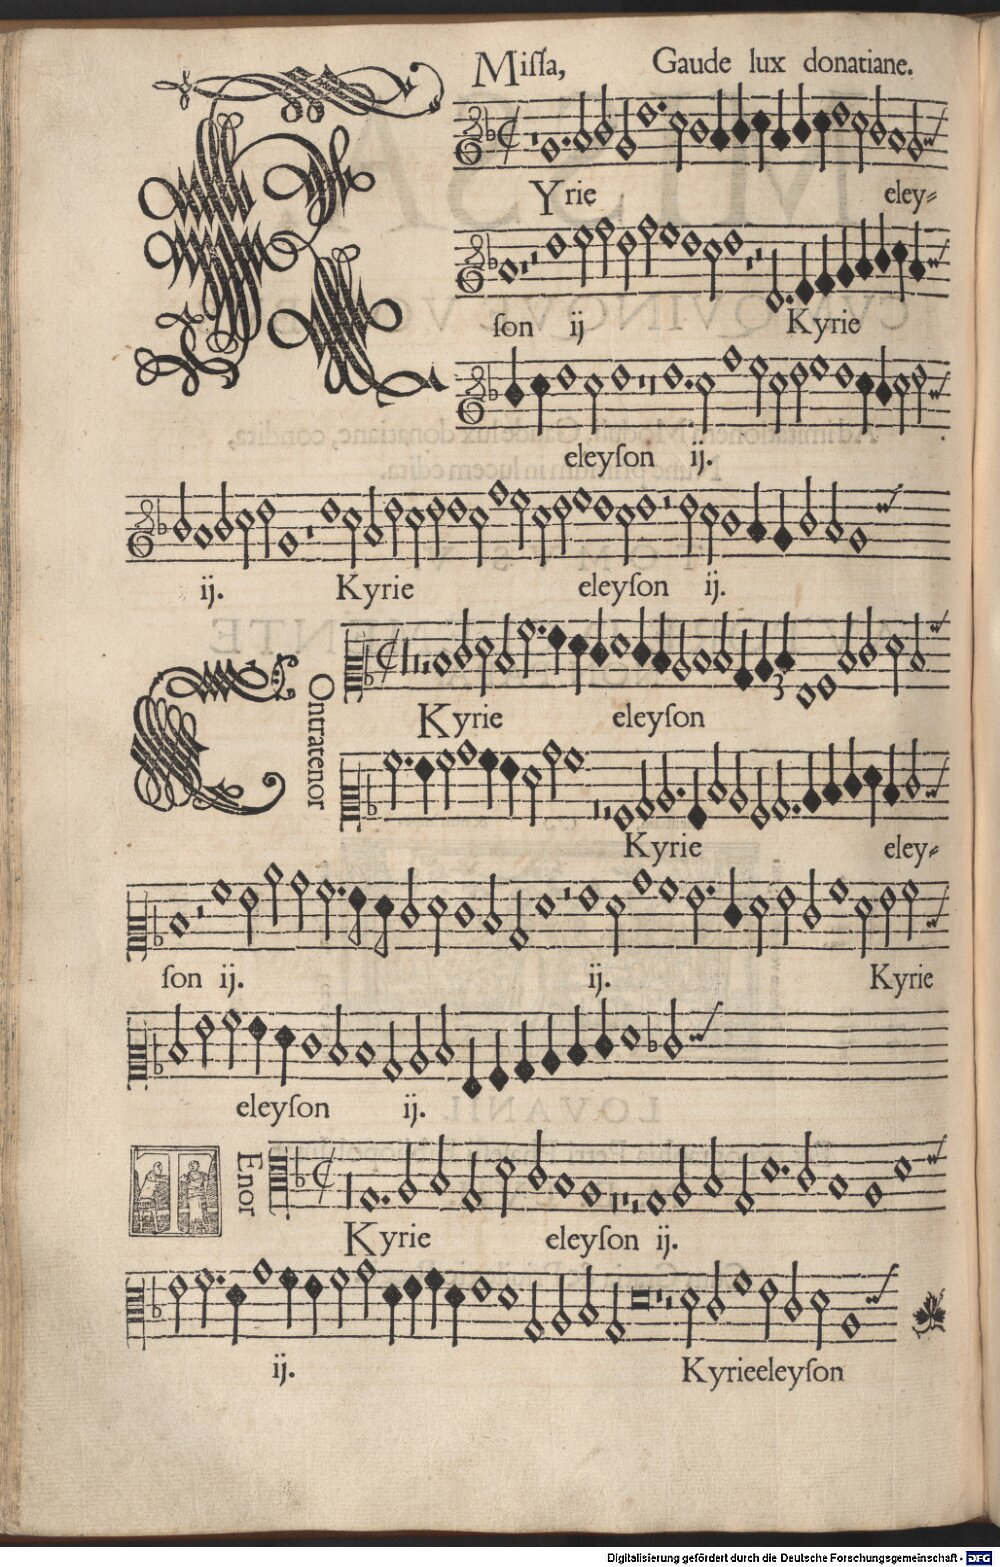 Miſſa, Gaude lux donatiane.
KYrie eley⸗
ſon ij Kyrie
eleyſon ij.
ij. Kyrie eleyſon ij.
Contratenor
Kyrie eleyſon
Kyrie eley⸗
ſon ij. ij. Kyrie
eleyſon ij.
TEnor
Kyrie eleyſon ij.
ij. Kyrieeleyſon
Digitalisierung gefördert durch die Deutsche Forschungsgemeinschaft - DFG